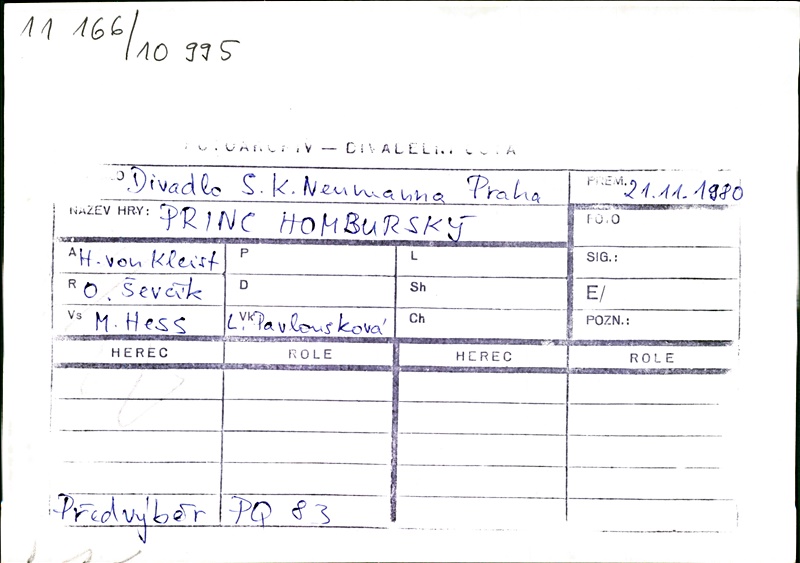 11 166/10 995
FOTOARCHIV — DIVADELNÍ ÚSTAV
Divadlo S. K. Neumanna Praha PREM. 21.11.1980
NÁZEV HRY: PRINC HOMBURSKÝ FOTO
A H. von Kleist P L SIG.:
R O. Ševčík D Sh E/
Vs M. Hess VK L. Pavlousková Ch POZN.:
HEREC ROLE HEREC ROLE
Předvýběr PQ 83